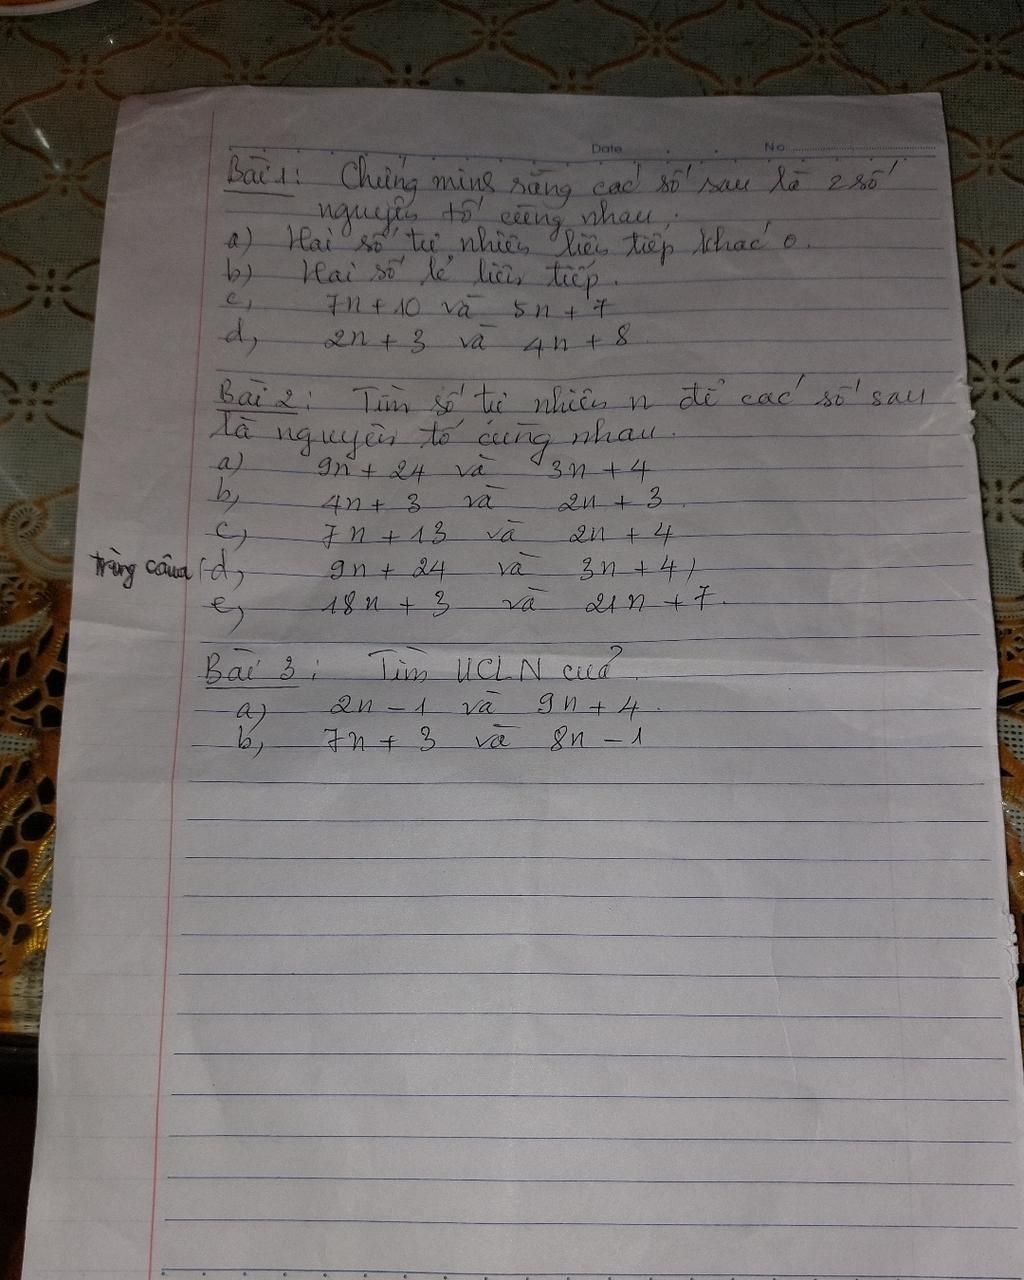 Date No
Bài 1: Chứng minh rằng các số sau là 2 số
nguyên tố cùng nhau.
a) Hai số tự nhiên liên tiếp khác 0.
b) Hai số lẻ liên tiếp.
c, 7n + 10 và 5n + 7
d, 2n + 3 và 4n + 8
Bài 2: Tìm số tự nhiên n để các số sau
là nguyên tố cùng nhau.
a) 9n + 24 và 3n + 4
b, 4n + 3 và 2n + 3
c, 7n + 13 và 2n + 4
trùng câu a (d, 9n + 24 và 3n + 4)
e, 18n + 3 và 21n + 7.
Bài 3: Tìm ƯCLN của
a) 2n - 1 và 9n + 4.
b, 7n + 3 và 8n - 1